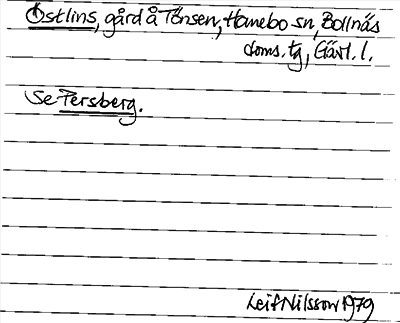 Östlins, gård å Tönsen, Hanebo sn, Bollnäs
doms. tg, Gävl. l.
Se Persberg.
Leif Nilsson 1979